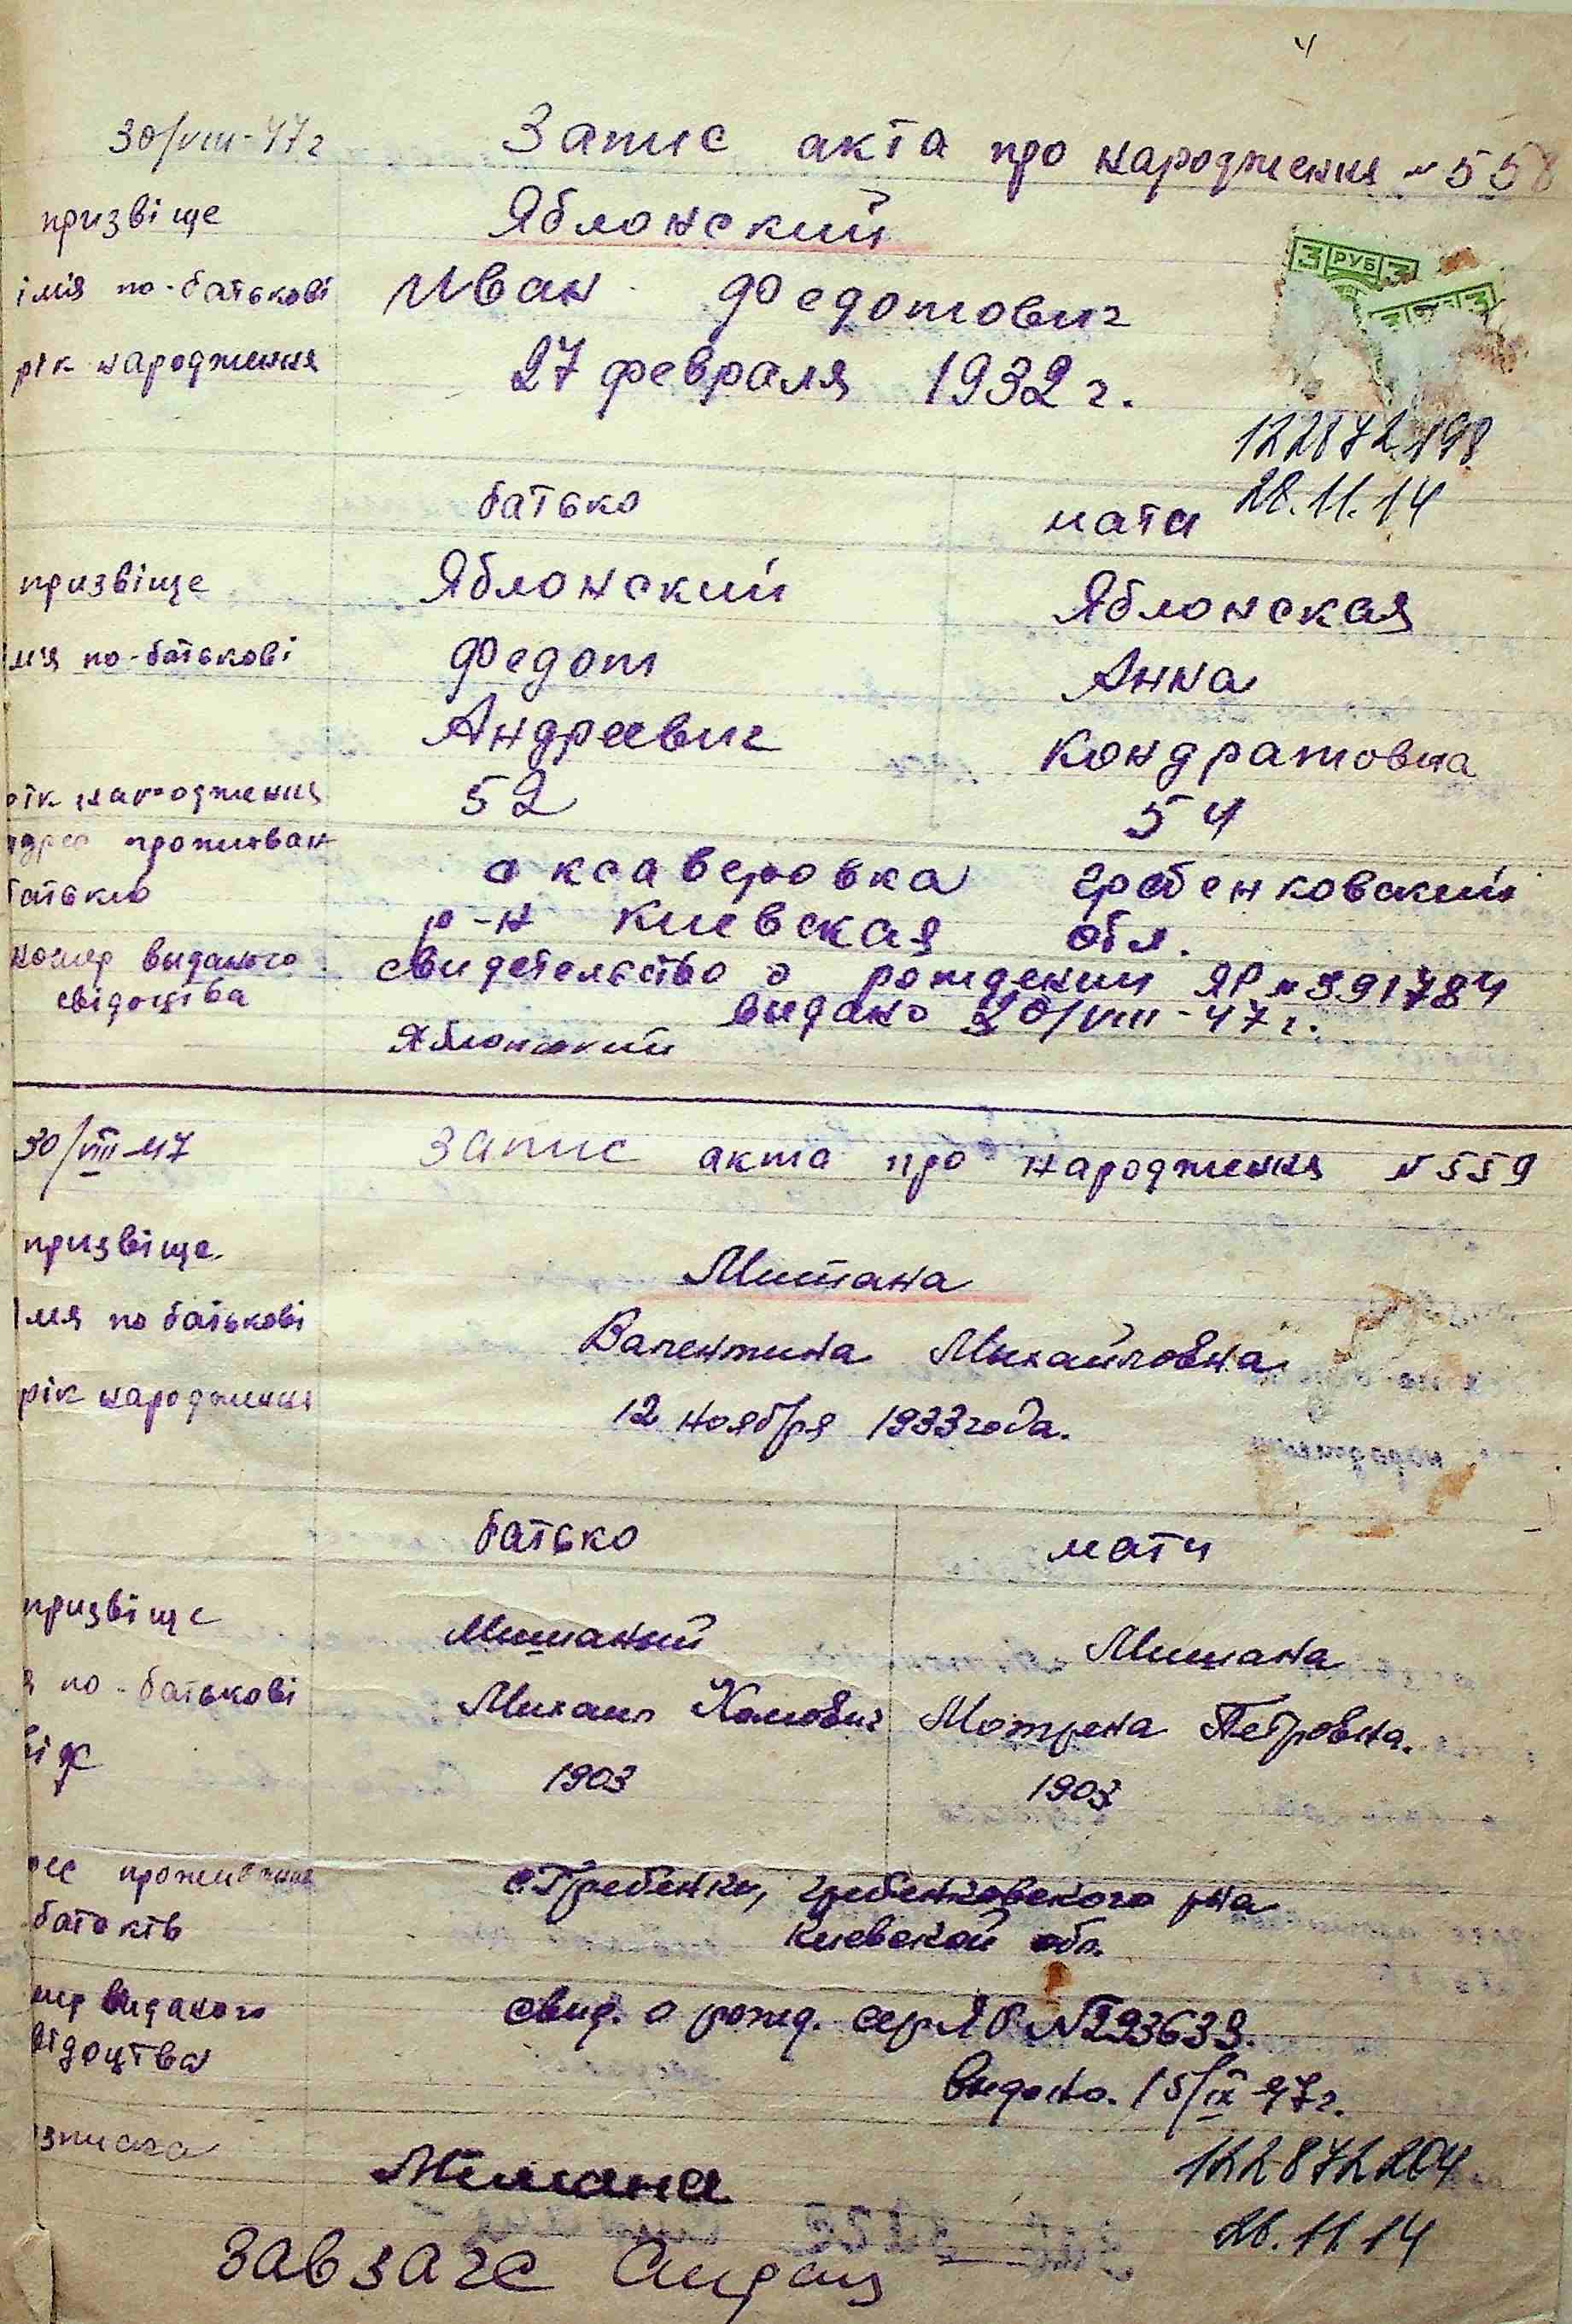 30/VIII-47г Запис акта про народження №558
призвіще Яблонский
3 РУБ 3
імя по-батькові Иван Федотович
рік народження 27 февраля 1932 г.
122872198
28.11.14
батько мати
призвіще Яблонский Яблонская
імя по-батькові Федот Анна
Андреевич Кондратовна
рік народження 52 54
адрес проживан с Ксаверовка Гребенковский
батьків р-н Киевская обл.
номер выданого свидетельство о рождении ЯР №391784
свідоцтва выдано 30/VIII-47г.
Яблонский
30/VIII-47 Запис акта про народження №559
призвіще. Мишана
Імя по батькові Валентина Михайловна
рік народження 12 ноября 1933 года.
батько мати
призвіще Мишаный Мишана
я по-батькові Михаил Хомович Мотрена Петровна.
вік 1903 1903
рес проживання с. Гребенки, Гребенковского р-на
батьків Киевской обл.
мер виданого свид. о рожд. сер ЯР №293639.
відоцтва Видано. 15/IX-47г.
зписка Мишана
122872204
28.11.14
Зав загс